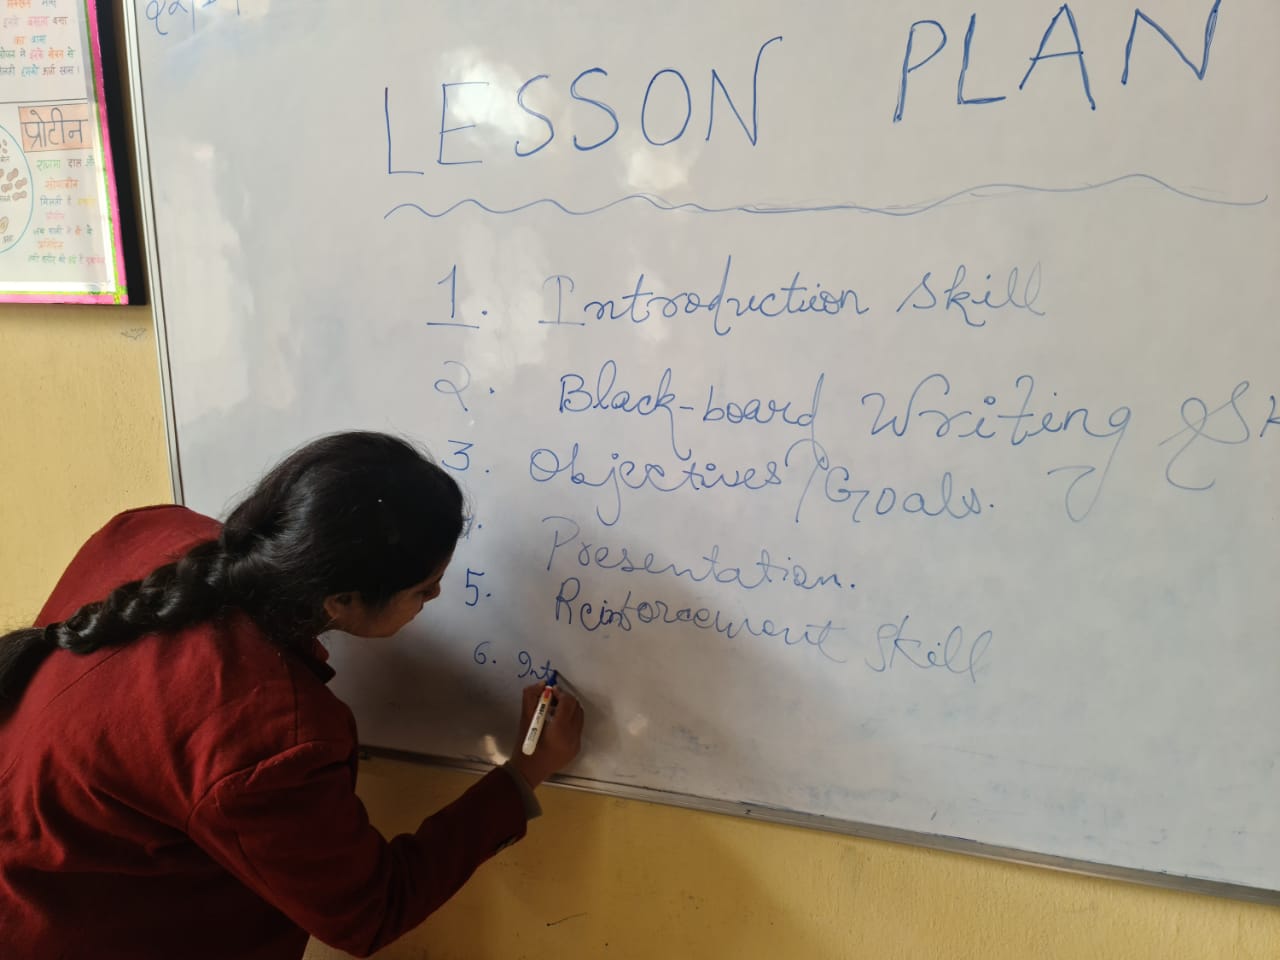 का वास
प्रोटीन
राजमा दाल
सोयाबीन
मिलती है
LESSON PLAN
1. Introduction Skill
2. Black-board Writing Sk
3. Objectives/Goals.
Presentation.
5. Reinforcement Skill
6. Int